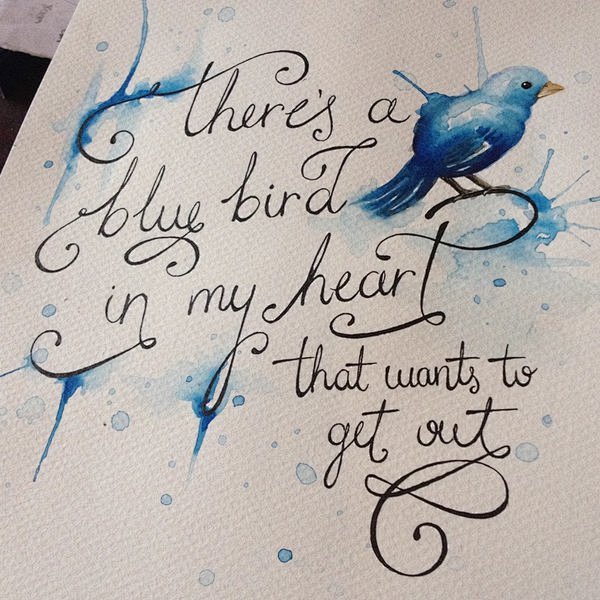 there's a
blue bird
in my heart
that wants to
get out